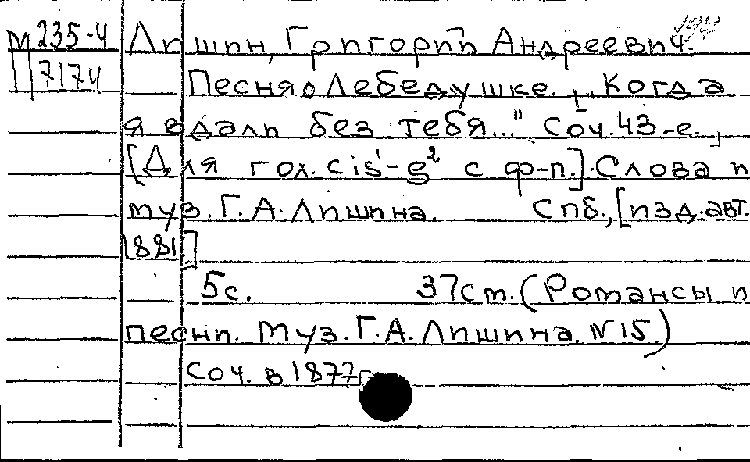 М 235-4 Лишин, Григорий Андреевич.
7174 Песня о Лебедушке. „Когда
я вдали без тебя..." Соч. 43-е.,
[Для гол. cis'-g² с ф-п.]. Слова и
муз. Г. А. Лишина. Спб., [изд. авт.
1881]
5с. 37см. (Романсы и
песни. Муз. Г. А. Лишина. №15.)
Соч. в 1877г.